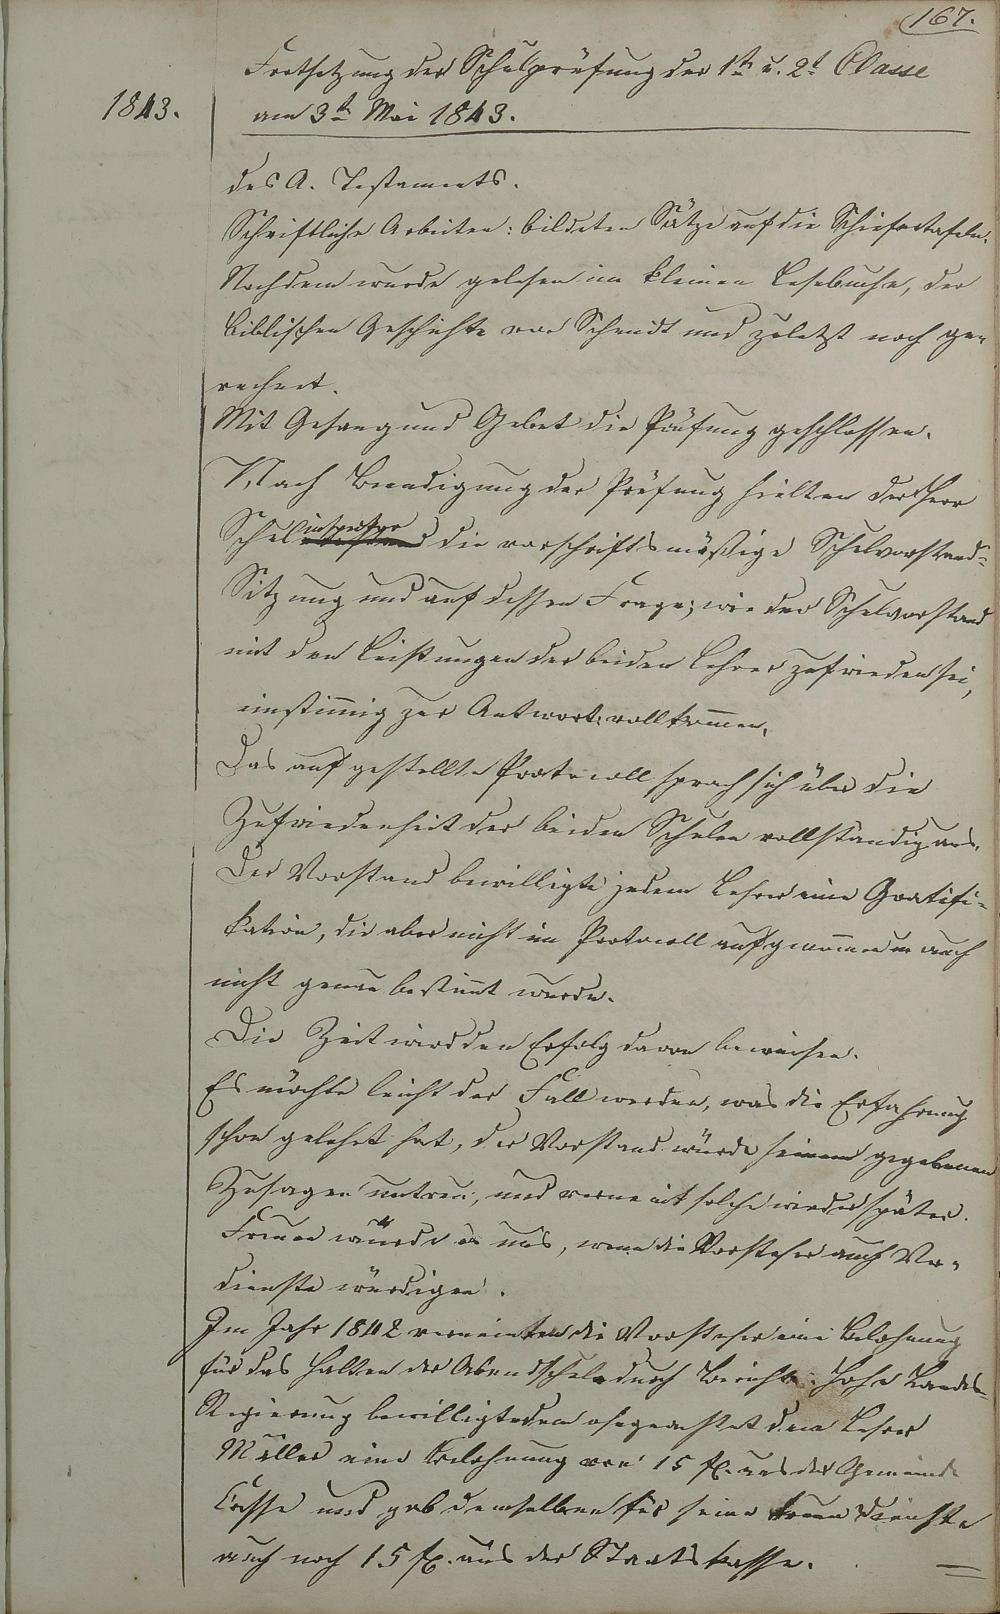 167.
Fortsetzung der Schulprüfung der 1t u. 2t Classe
1843.
am 3t Mai 1843.
des A. Testaments.
Schriftliche Arbeiten: bildeten Sätze auf die Schiefertafeln.
Nachdem wurde gelesen im kleinen Lesebuche, der
biblischen Geschichte von Schmidt und zuletzt noch ge-
rechnet.
Mit Gesang und Gebet die Prüfung geschlossen.
Nach Beendigung der Prüfung hielten der Herr
Schulinspector die vorschriftsmäßige Schulvorstand-
Sitzung und auf dessen Frage; wie der Schulvorstand
mit den Leistungen der beiden Lehrer zufrieden sei,
einstimig zur Antwort: vollkommen.
Das aufgestellte Protocoll sprach sich über die
Zufriedenheit der beiden Schulen vollständig aus.
Der Vorstand bewilligte jedem Lehrer eine Gratifi-
kation, die aber nicht im Protocoll aufgenommen u. auch
nicht genau bestimt wurde.
Die Zeit wird den Erfolg davon beweisen.
Es möchte leicht der Fall werden, was die Erfahrung
schon gelehrt hat, der Vorstand würde seinem gegebenen
Zusagen untreu, und verneint solche wieder später.
Freuen würde es uns, wenn die Vorsteher auch Ver-
dienste würdigen.
Im Jahr 1842 verneinten die Vorsteher eine Belohnung
für das Halten der Abendschule durch Berichte. Hohe Landes-
Regierung bewilligte dem ohngeachtet dem Lehrer
Müller eine Belohnung von 15 fl. aus der Gemeinde
Casse und gab demselben für seine treuen Dienste
auch noch 15 fl. aus der Staatskasse.